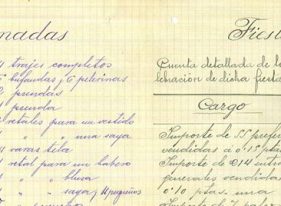 nadas
trajes completos
bufandas, 6 pelerinas
prendas
prenda
retales para un vestido
" " una saya
varas tela
retal para un babero
" " blusa
" " saya, 4 pequeños
Fies
Cuenta detallada de lo
lebración de dicha fiesta
Cargo
Importe de 55 prefer
vendidas a 0'15 pta
Importe de 214 entr
generales vendidas
0'10 ptas. una